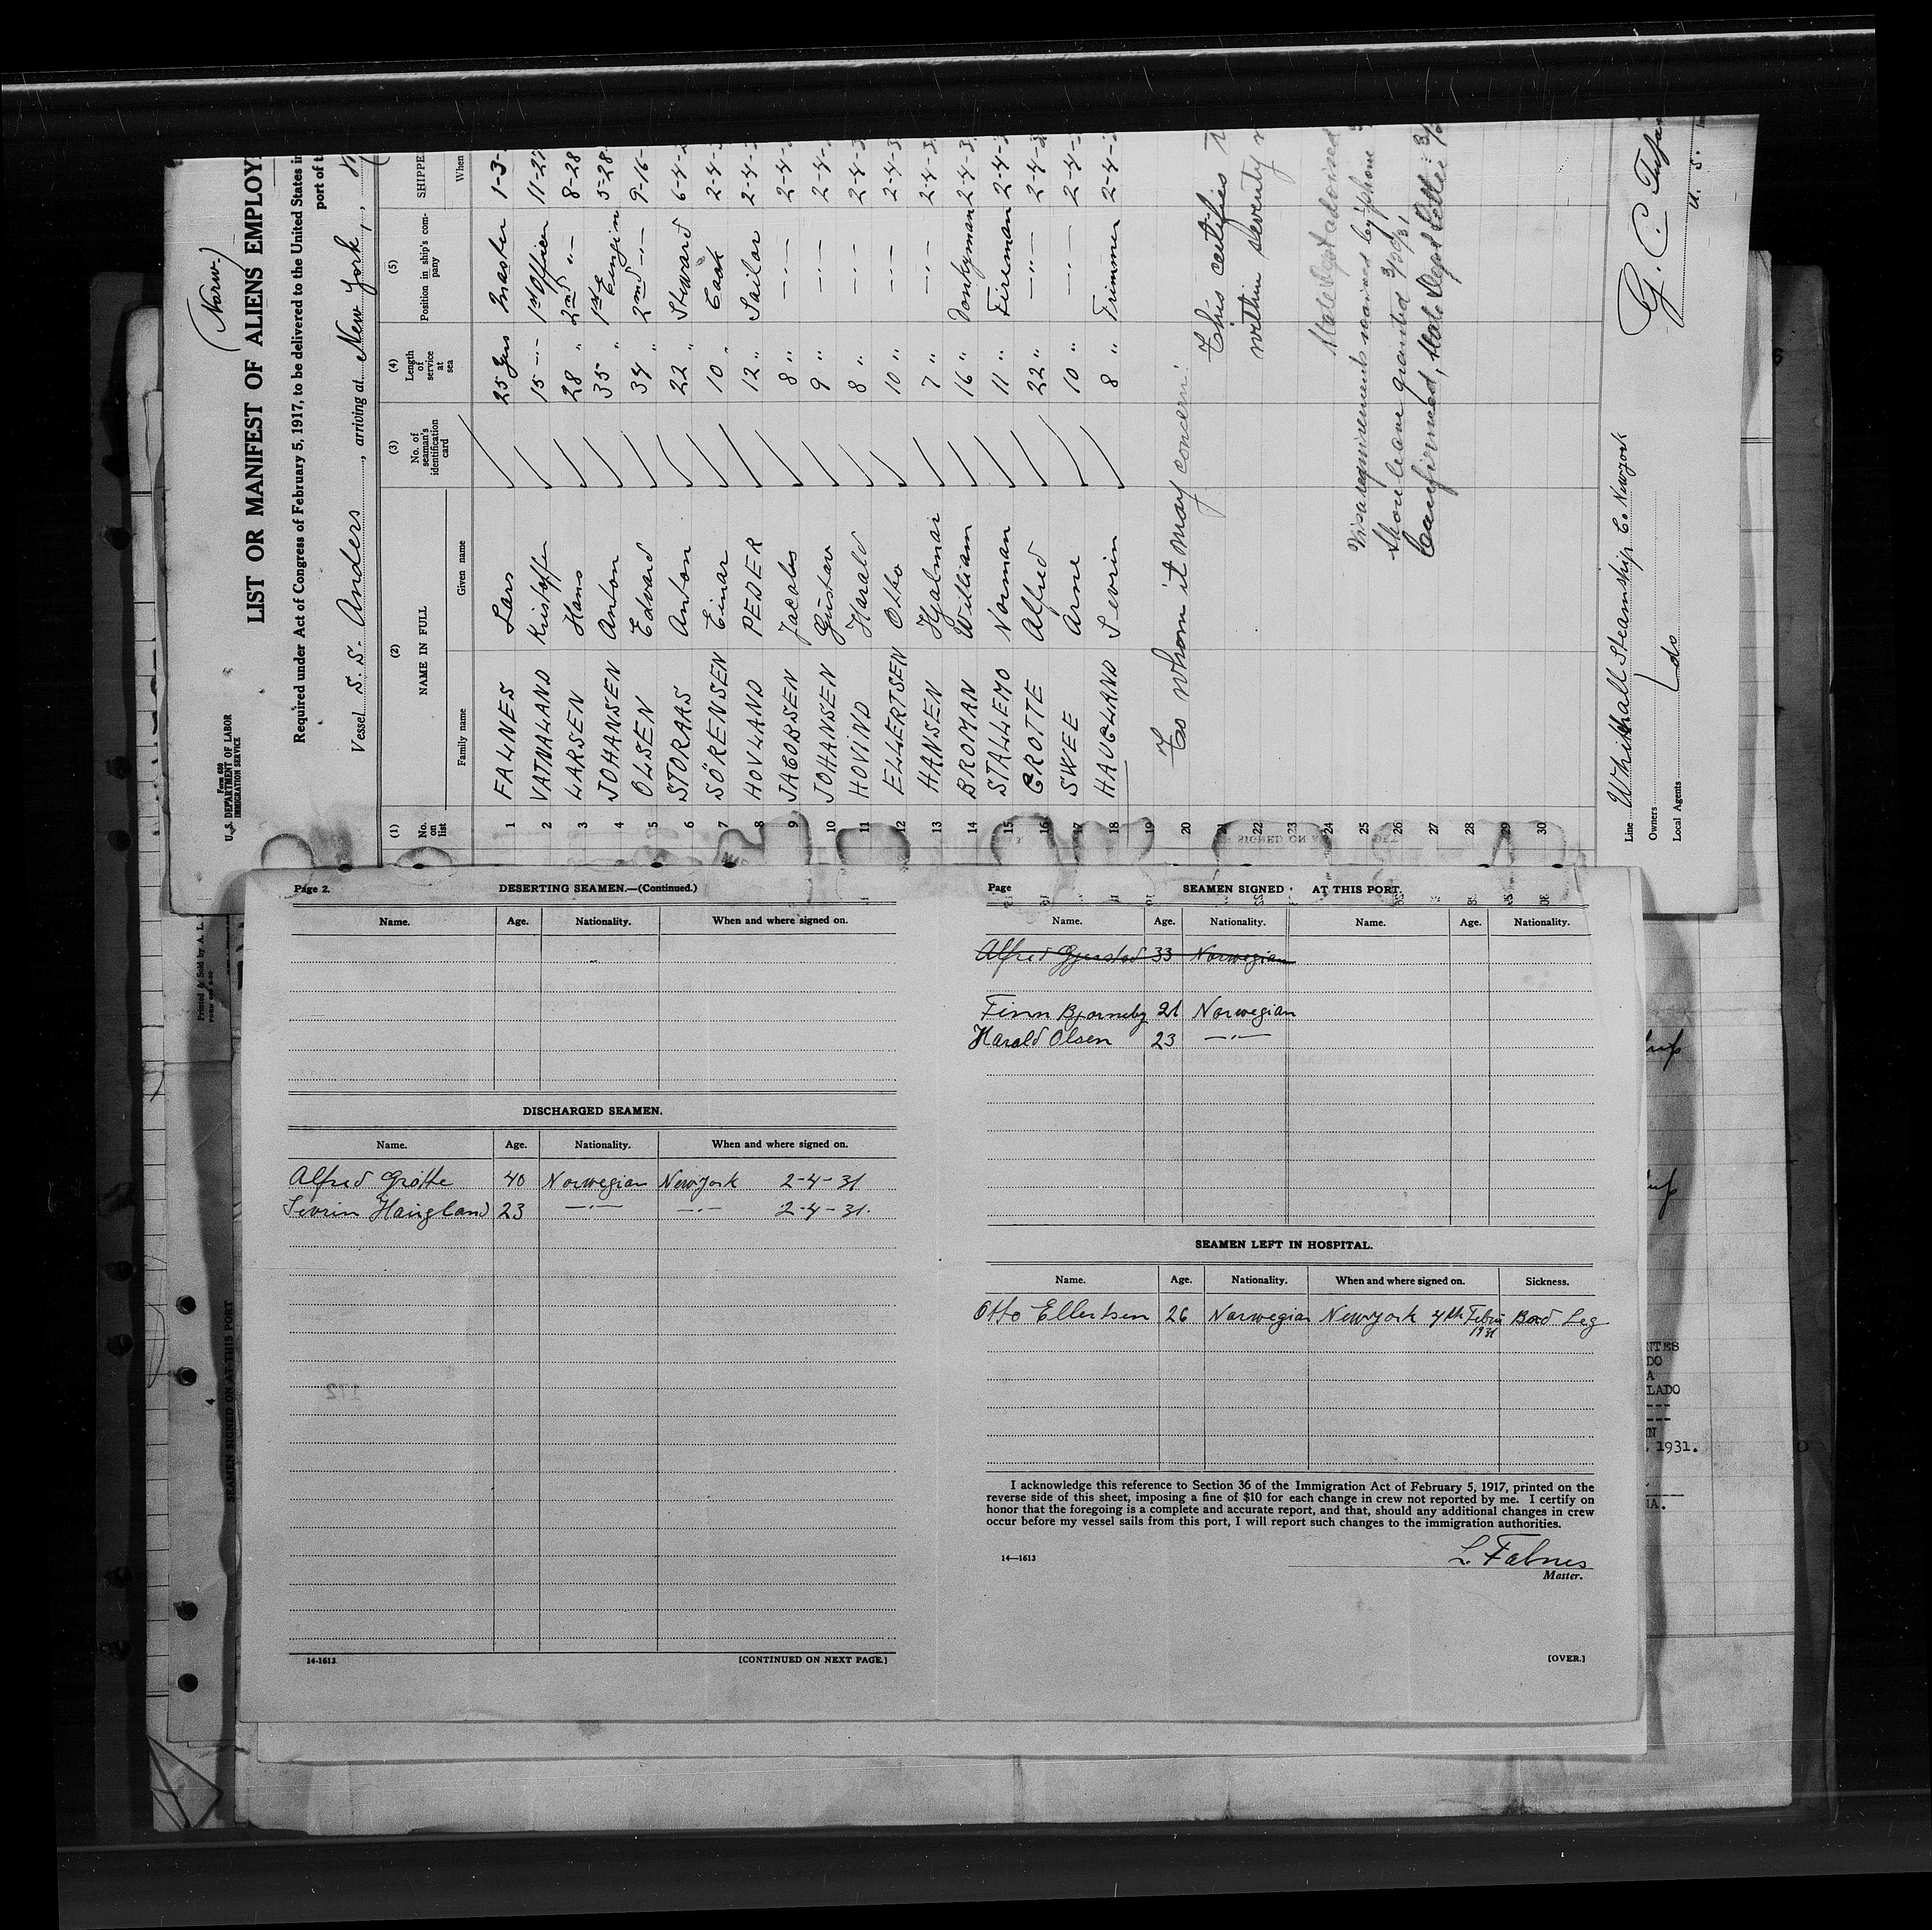 (Norw.)
Form 680
U. S. DEPARTMENT OF LABOR
IMMIGRATION SERVICE
LIST OR MANIFEST OF ALIENS EMPLOY
Required under Act of Congress of February 5, 1917, to be delivered to the United States
port of
Vessel S. S. Anders, arriving at New York,
(1) (2) (3) (4) (5)
No. on list NAME IN FULL No. of seaman's identification card Length of service at sea Position in ship's company SHIPPE
Family name Given name When
1 FALNES Lars 25 yrs Master 1-3-
2 VATNALAND Kristoffer 15 -"- 1st Officer 11-27
3 LARSEN Hans 28 " 2nd -"- 8-28
4 JOHANSEN Anton 35 " 1st Eengin 5-28-
5 OLSEN Edvard 34 " 2nd -"- 9-16-
6 STORAAS Anton 22 " Steward 6-4-
7 SÖRENSEN Einar 10 " Cook 2-4-
8 HOVLAND PEDER 12 " Sailor 2-4-
9 JACOBSEN Jacobs 8 " -"- 2-4-
10 JOHANSEN Gustav 9 " -"- 2-4-
11 HOVIND Harald 8 " -"- 2-4-3
12 ELLERTSEN Otto 10 " -"- 2-4-3
13 HANSEN Hjalmar 7 " -"- 2-4-3
14 BROMAN William 16 " Donkyman 2-4-3
15 STALLEMO Norman 11 " Fireman 2-4-
16 GROTTE Alfred 22 " -"- 2-4-3
17 SWEE Arne 10 " -"- 2-4-
18 HAUGLAND Sevrin 8 " Trimmer 2-4-
19
20 To whom it may concern:
21 This certifies
22 within seventy
23
24 State Dept advised
25 Visa requirements waived by phone
26 Shore leave granted
27 Confirmed, State Dept letter
28
29
30
Line Whitehall Steamship Co Newyork
Owners do
Local Agents
G. C.
U. S.
Page 2. DESERTING SEAMEN.—(Continued.)
Name. Age. Nationality. When and where signed on.
DISCHARGED SEAMEN.
Name. Age. Nationality. When and where signed on.
Alfred Grotte 40 Norwegian Newyork 2-4-31
Sevrin Haugland 23 -"- -"- 2-4-31.
14-1613 [CONTINUED ON NEXT PAGE.]
Page SEAMEN SIGNED AT THIS PORT.
Name. Age. Nationality. Name. Age. Nationality.
Alfred Gjerstad 33 Norwegian
Finn Bjorneby 21 Norwegian
Harald Olsen 23 -"-
SEAMEN LEFT IN HOSPITAL.
Name. Age. Nationality. When and where signed on. Sickness.
Otto Ellertsen 26 Norwegian Newyork 4th Febru 1931 Bad Leg
I acknowledge this reference to Section 36 of the Immigration Act of February 5, 1917, printed on the
reverse side of this sheet, imposing a fine of $10 for each change in crew not reported by me. I certify on
honor that the foregoing is a complete and accurate report, and that, should any additional changes in crew
occur before my vessel sails from this port, I will report such changes to the immigration authorities.
L. Falnes
Master.
14—1613
[OVER.]
Printed & Sold by A. L.
4
SEAMEN SIGNED ON AT THIS PORT
NTES
DO
A
LADO
N
. 1931.
IA.
172